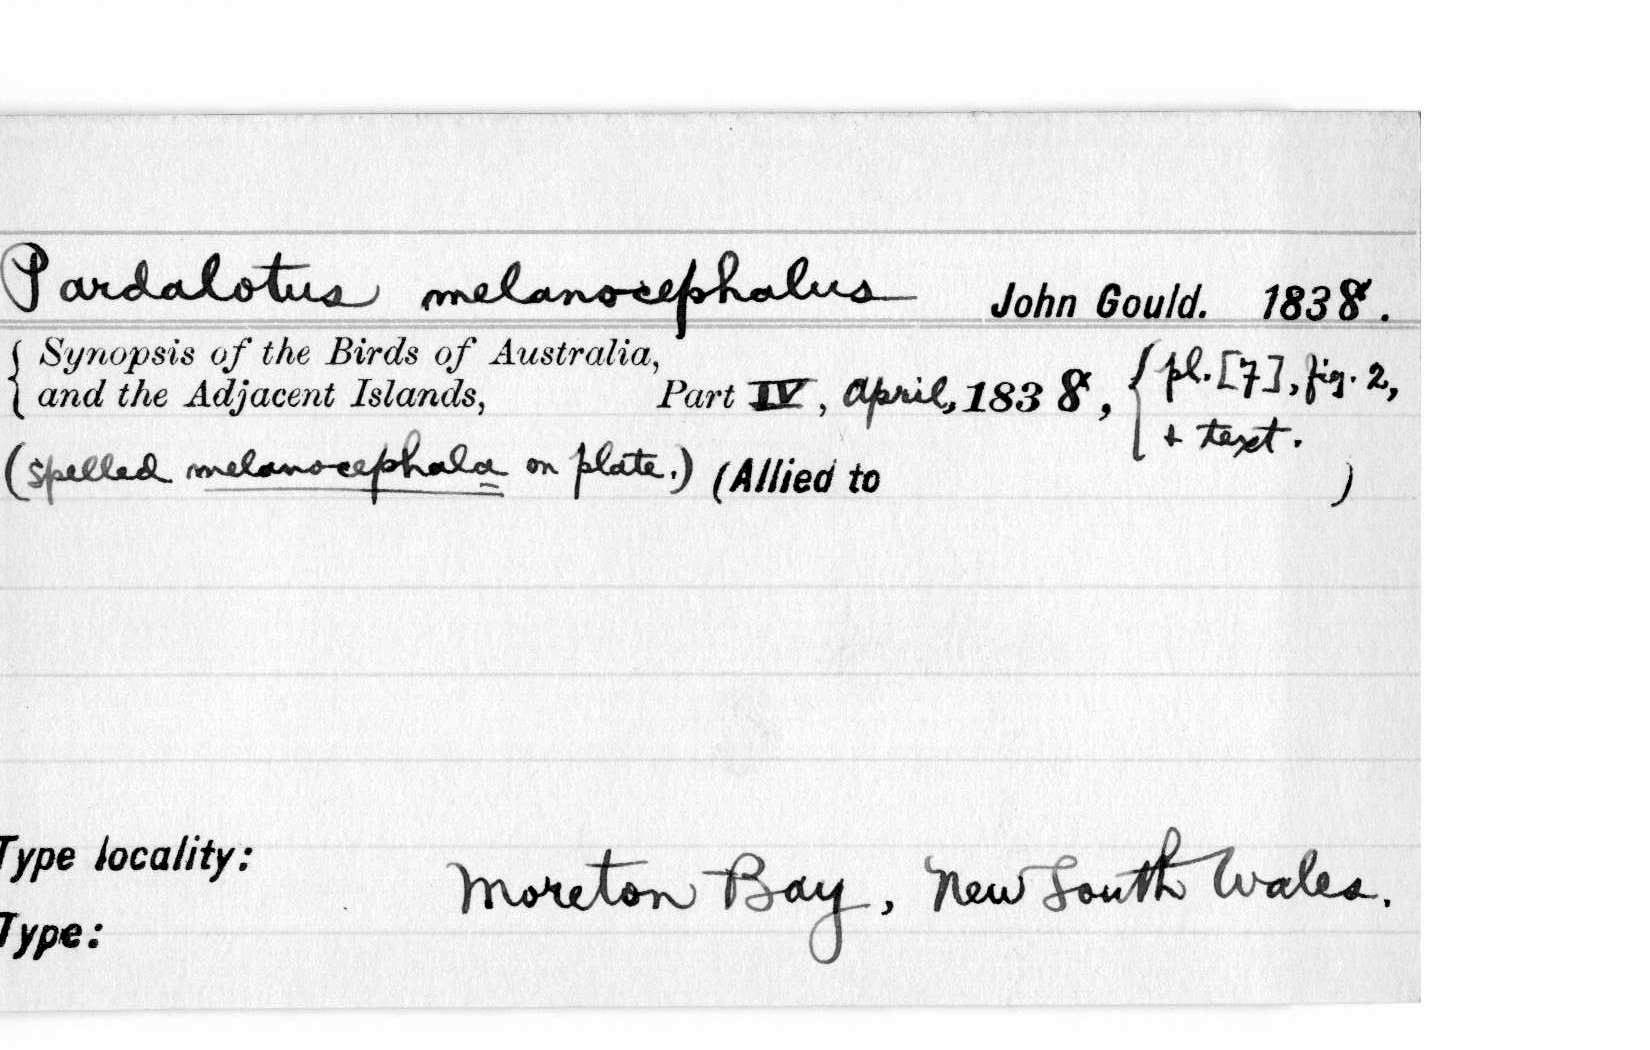 Pardalotus melanocephalus John Gould. 1838.
Synopsis of the Birds of Australia,
and the Adjacent Islands, Part IV, April, 1838, { pl. [7], fig. 2,
+ text.
(spelled melanocephala on plate.) (Allied to )
Type locality: Moreton Bay, New South Wales.
Type: